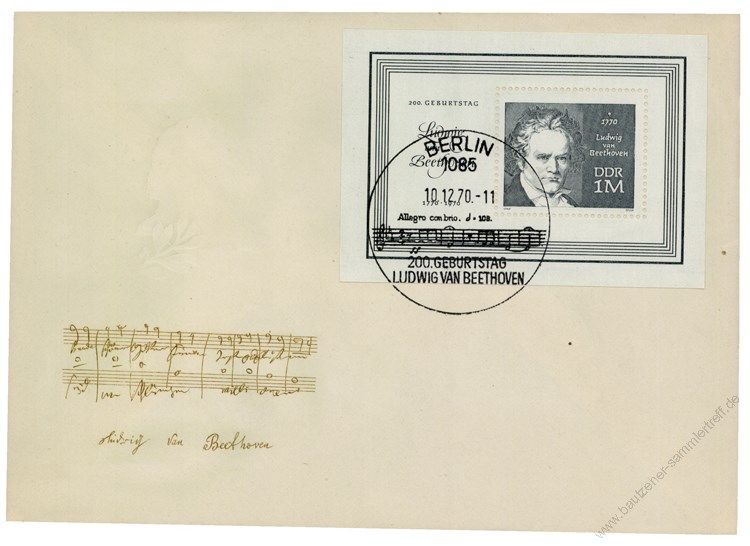 200. GEBURTSTAG
Ludwig
van
Beethoven
1770·1970
1770
Ludwig
van
Beethoven
DDR
1M
BERLIN
1085
10.12.70.-11
Allegro con brio. 𝅗𝅥. = 108.
ff
200. GEBURTSTAG
LUDWIG VAN BEETHOVEN
Ludwig van Beethoven
www.bautzener-sammlertreff.de